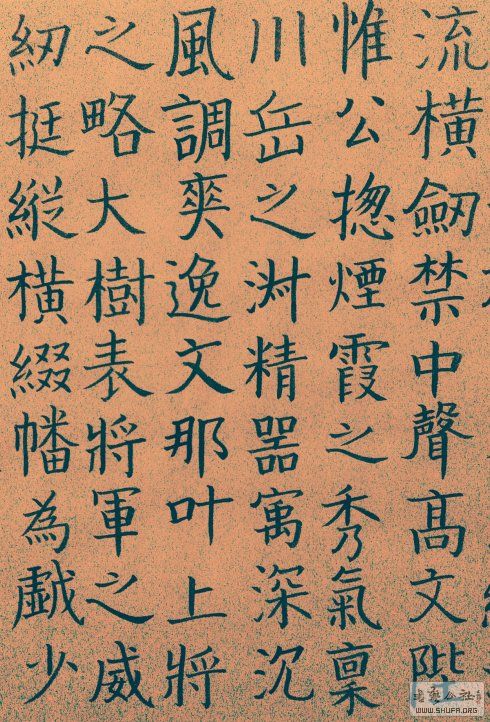 流横劔禁中聲髙文陛
惟公揔煙霞之秀氣稟
川岳之渊精器寓深沉
風調爽逸文那叶上將
之略大樹表將軍之威
紉挺縱横綴幡為戱少
WWW.SHUFA.ORG